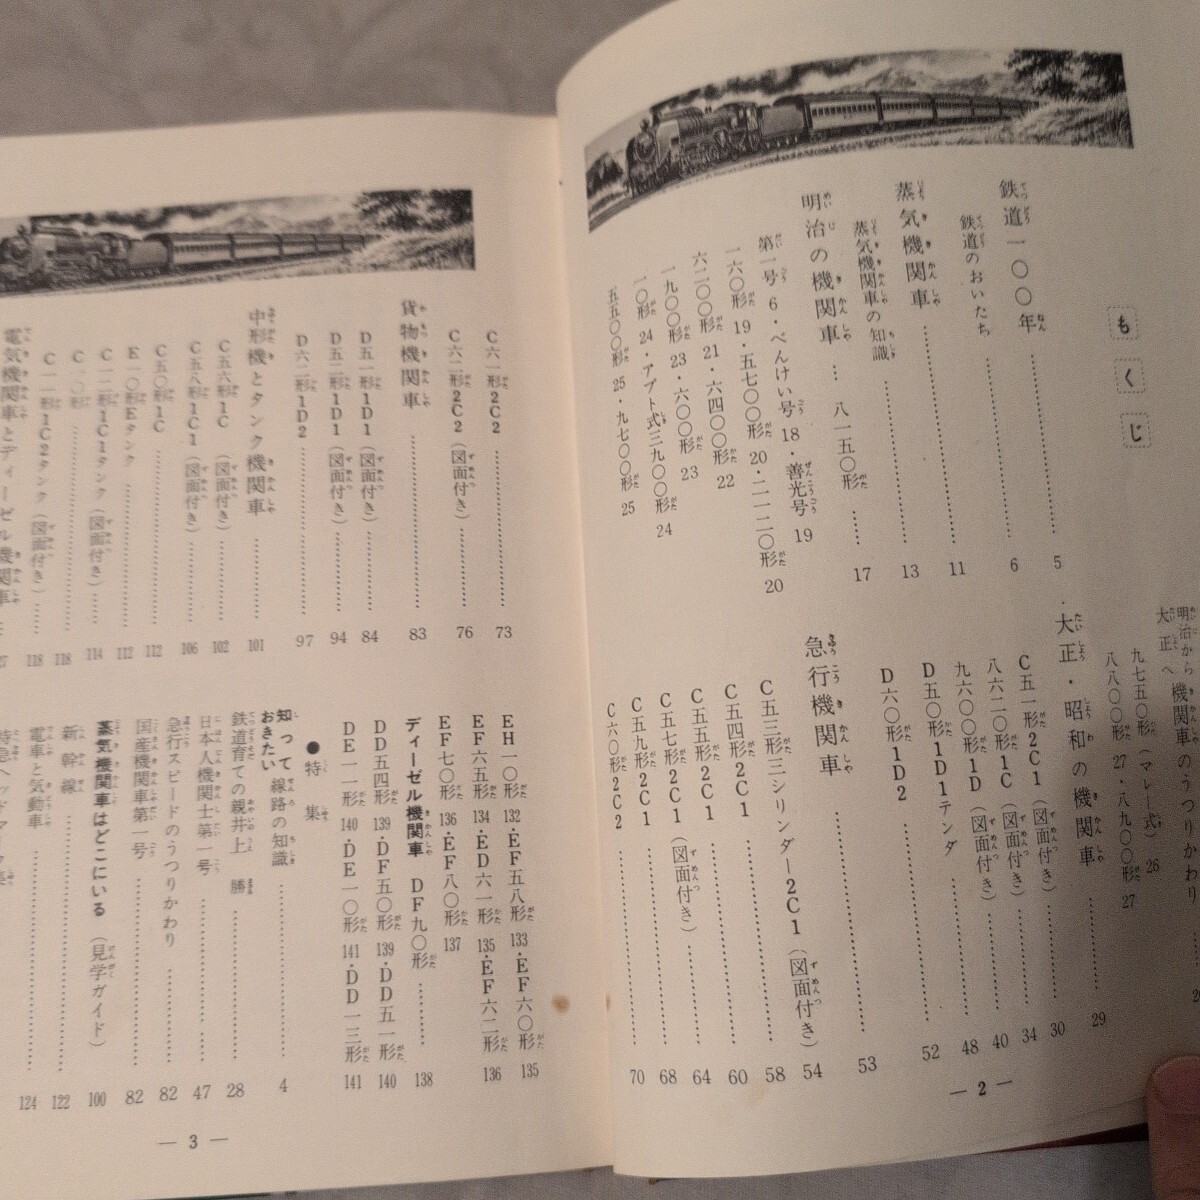 もくじ
鉄道一〇〇年……5
鉄道のおいたち……6
蒸気機関車……11
蒸気機関車の知識……13
明治の機関車…八一五〇形……17
第一号 6・べんけい号 18・善光号 19
一六〇形 19・五七〇〇形 20・二一二〇形 20
六二〇〇形 21・六四〇〇形 22
一九〇〇形 23・六〇〇形 23
一〇形 24・アプト式三九〇〇形 24
五五〇〇形 25・九七〇〇形 25
九七五〇形（マレー式）26
八八〇〇形 27・八九〇〇形 27
明治から大正へ 機関車のうつりかわり
大正・昭和の機関車……29
C五一形2C1（図面付き）……30
八六二〇形1C（図面付き）……34
九六〇〇形1D（図面付き）……40
D五〇形1D1テンダ……48
D六〇形1D2……52
急行機関車……53
C五三形三シリンダー2C1（図面付き）……54
C五四形2C1……58
C五五形2C1……60
C五七形2C1（図面付き）……64
C五九形2C1……68
C六〇形2C2……70
— 2 —
C六一形2C2……73
C六二形2C2（図面付き）……76
貨物機関車……83
D五一形1D1（図面付き）……84
D五二形1D1（図面付き）……94
D六二形1D2……97
中形機とタンク機関車……101
C五六形1C（図面付き）……102
C五八形1C1（図面付き）……106
C五〇形1C……112
E一〇形Eタンク……112
C一二形1C1タンク（図面付き）……114
C一〇形……118
C一一形1C2タンク（図面付き）……118
電気機関車とディーゼル機関車
EH一〇形 132・EF五八形 133・EF六〇形 135
EF六五形 134・ED六一形 135・EF六二形 136
EF七〇形 136・EF八〇形 137
ディーゼル機関車 DF九〇形……138
DD五四形 139・DF五〇形 139・DD五一形 140
DE一一形 140・DE一〇形 141・DD一三形 141
●特集
知っておきたい 線路の知識……4
鉄道育ての親井上 勝……28
日本人機関士第一号……47
急行スピードのうつりかわり……82
国産機関車第一号……82
蒸気機関車はどこにいる（見学ガイド）100
新幹線……122
電車と気動車……124
特急ヘッドマーク集
— 3 —